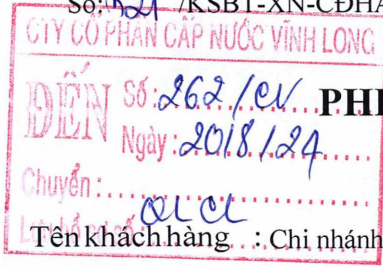 Số: 521 /KSBT-XN-CĐHA
CTY CỔ PHẦN CẤP NƯỚC VĨNH LONG
ĐẾN Số: 262/CV PHI
Ngày: 20/8/24
Chuyển:
QLCL
Tên khách hàng : Chi nhánh